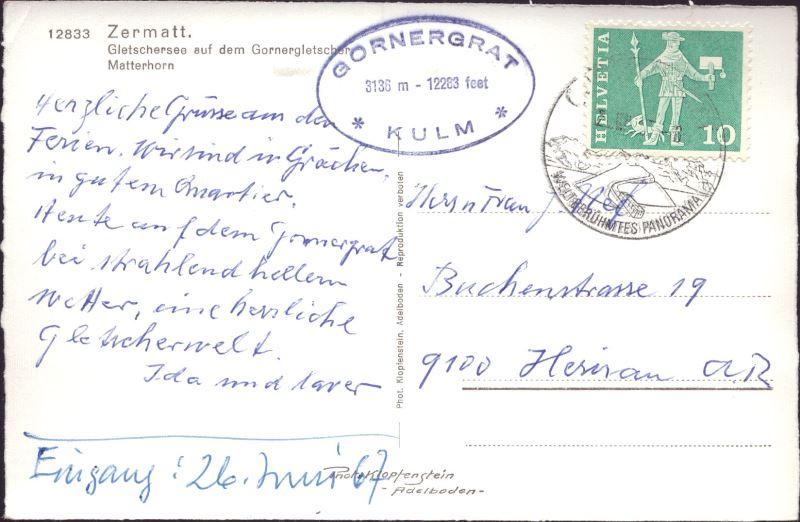 12833 Zermatt.
Gletschersee auf dem Gornergletscher
Matterhorn
GORNERGRAT
3136 m - 12283 feet
* KULM *
HELVETIA
10
WELTBERÜHMTES PANORAMA
Herzliche Grüsse aus den
Ferien. Wir sind in Grächen,
in gutem Quartier.
Heute auf dem Gornergrat
bei strahlend hellem
Wetter, eine herrliche
Gletscherwelt.
Ida und Xaver
Eingang: 26. Juni 67
Phot. Klopfenstein, Adelboden - Reproduktion verboten
Photo Klopfenstein
- Adelboden -
Herrn Franz
Buchenstrasse 19
9100 Herisau A.R